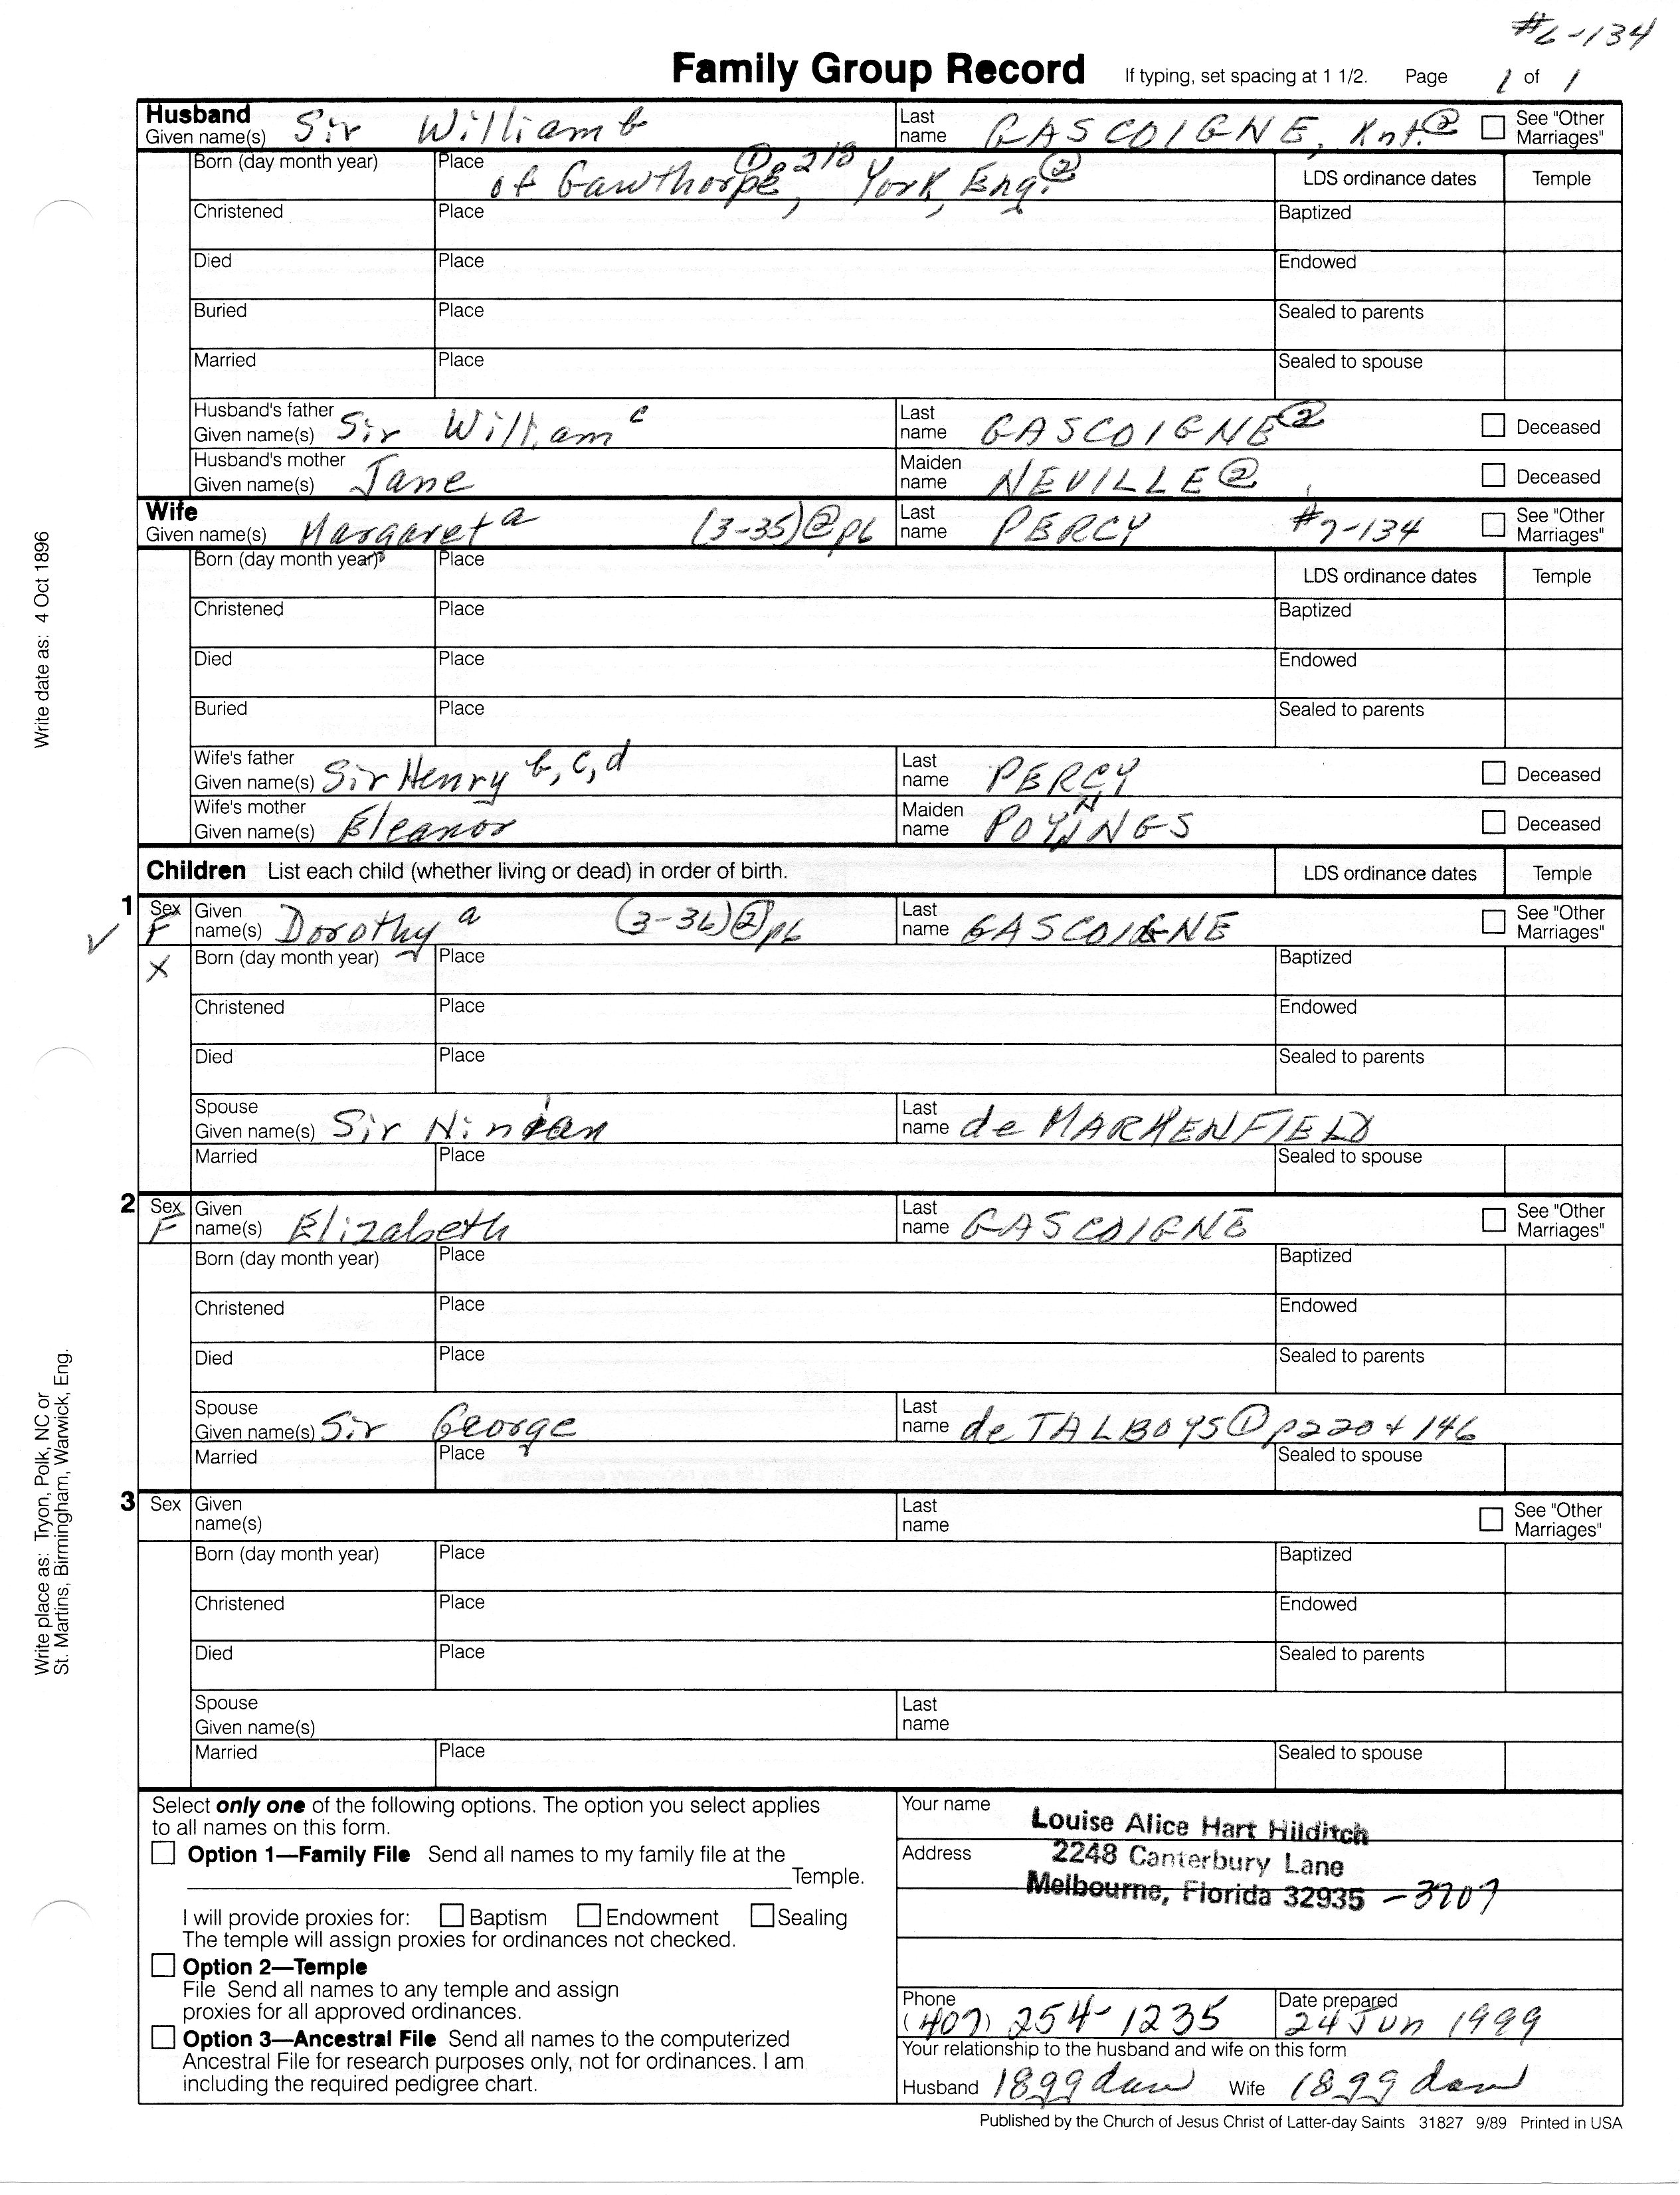 #6-134
Family Group Record If typing, set spacing at 1 1/2. Page 1 of 1
Husband
Given name(s) Sir William b Last name GASCOIGNE, Knt. ② See "Other Marriages"
Born (day month year) Place of Gawthorpe, ① p 218 York, Eng. ② LDS ordinance dates Temple
Christened Place Baptized
Died Place Endowed
Buried Place Sealed to parents
Married Place Sealed to spouse
Husband's father Given name(s) Sir William c Last name GASCOIGNE ② Deceased
Husband's mother Given name(s) Jane Maiden name NEVILLE ② Deceased
Wife
Given name(s) Margaret a (3-35) ② p6 Last name PERCY #7-134 See "Other Marriages"
Born (day month year) Place LDS ordinance dates Temple
Christened Place Baptized
Died Place Endowed
Buried Place Sealed to parents
Wife's father Given name(s) Sir Henry b, c, d Last name PERCY Deceased
Wife's mother Given name(s) Eleanor Maiden name POYNINGS Deceased
Children List each child (whether living or dead) in order of birth. LDS ordinance dates Temple
1 Sex F Given name(s) Dorothy a (3-36) ② p6 Last name GASCOIGNE See "Other Marriages"
X Born (day month year) Place Baptized
Christened Place Endowed
Died Place Sealed to parents
Spouse Given name(s) Sir Ninian Last name de MARKENFIELD
Married Place Sealed to spouse
2 Sex F Given name(s) Elizabeth Last name GASCOIGNE See "Other Marriages"
Born (day month year) Place Baptized
Christened Place Endowed
Died Place Sealed to parents
Spouse Given name(s) Sir George Last name de TALBOYS ① p220 + 146
Married Place Sealed to spouse
3 Sex Given name(s) Last name See "Other Marriages"
Born (day month year) Place Baptized
Christened Place Endowed
Died Place Sealed to parents
Spouse Given name(s) Last name
Married Place Sealed to spouse
Select only one of the following options. The option you select applies
to all names on this form.
Option 1—Family File Send all names to my family file at the
Temple.
I will provide proxies for: Baptism Endowment Sealing
The temple will assign proxies for ordinances not checked.
Option 2—Temple
File Send all names to any temple and assign
proxies for all approved ordinances.
Option 3—Ancestral File Send all names to the computerized
Ancestral File for research purposes only, not for ordinances. I am
including the required pedigree chart.
Your name Louise Alice Hart Hilditch
Address 2248 Canterbury Lane
Melbourne, Florida 32935 -3707
Phone (407) 254-1235 Date prepared 24 Jun 1999
Your relationship to the husband and wife on this form
Husband 18 gg dau Wife 18 gg dau
Published by the Church of Jesus Christ of Latter-day Saints 31827 9/89 Printed in USA
Write date as: 4 Oct 1896
Write place as: Tryon, Polk, NC or
St. Martins, Birmingham, Warwick, Eng.